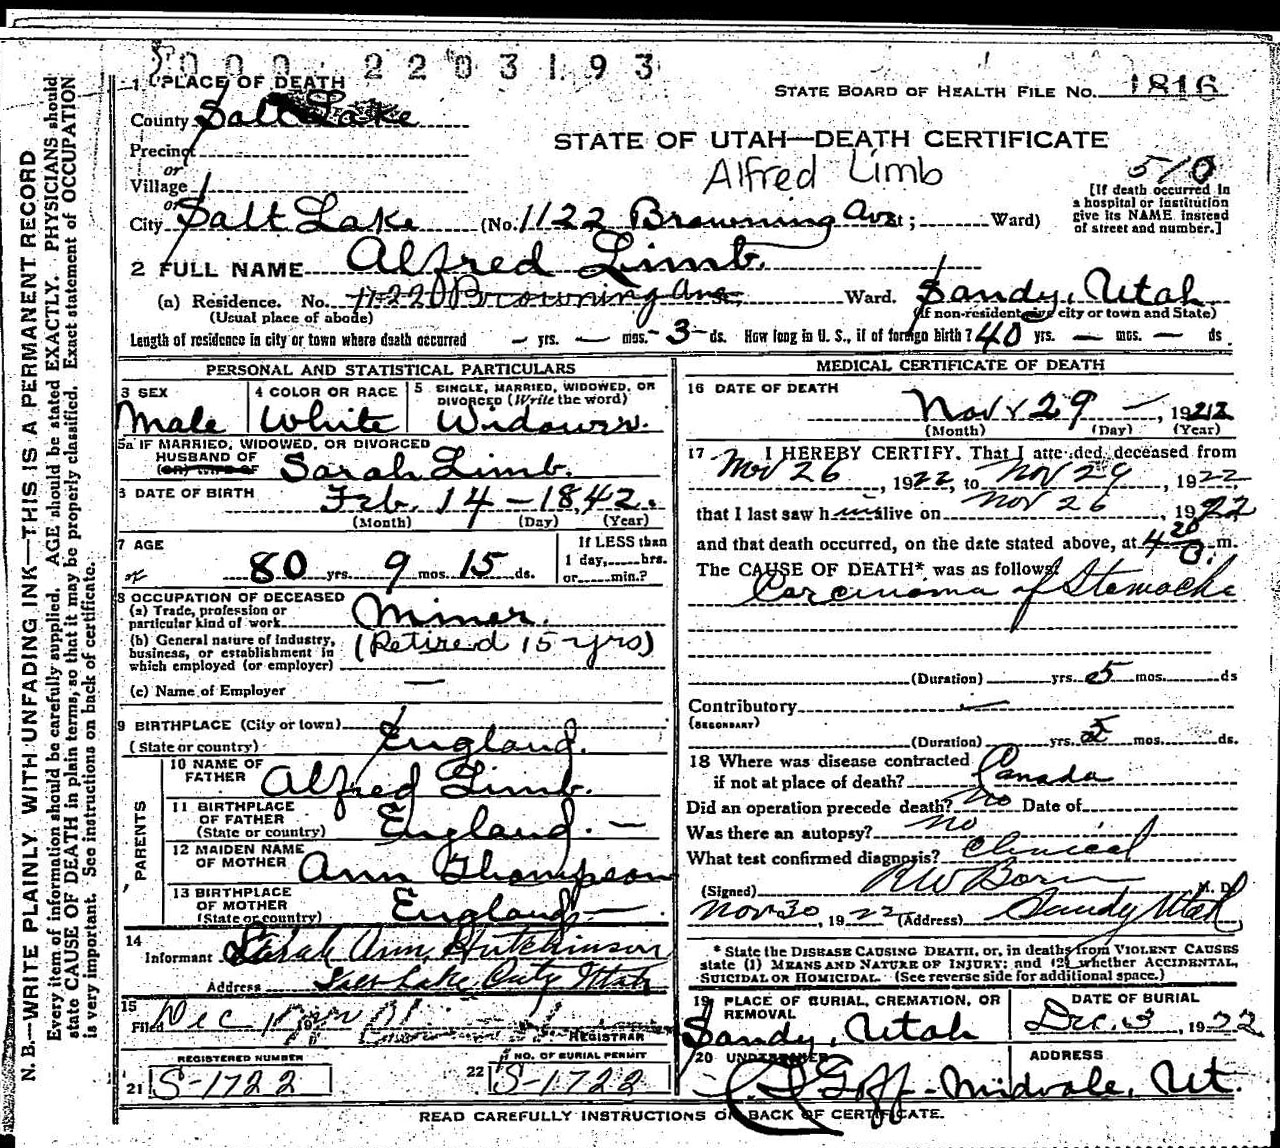 000 2203193
1 PLACE OF DEATH
STATE BOARD OF HEALTH FILE No. 1816
County Salt Lake
STATE OF UTAH—DEATH CERTIFICATE
Precinct
or
Alfred Limb
510
Village
or
[If death occurred in
a hospital or institution
give its NAME instead
of street and number.]
City Salt Lake (No. 1122 Browning Ave St; Ward)
2 FULL NAME Alfred Limb.
(a) Residence. No. 1122 Browning Ave. Ward. Sandy, Utah
(Usual place of abode) (If non-resident give city or town and State)
Length of residence in city or town where death occurred — yrs. — mos. 3 ds. How long in U. S., if of foreign birth? 40 yrs. — mos. — ds.
PERSONAL AND STATISTICAL PARTICULARS
3 SEX Male
4 COLOR OR RACE White
5 SINGLE, MARRIED, WIDOWED, OR
DIVORCED (Write the word)
Widower.
5a IF MARRIED, WIDOWED, OR DIVORCED
HUSBAND OF
(or) WIFE OF Sarah Limb.
6 DATE OF BIRTH Feb. 14 - 1842.
(Month) (Day) (Year)
7 AGE
80 yrs. 9 mos. 15 ds.
If LESS than
1 day, hrs.
or min.?
8 OCCUPATION OF DECEASED
(a) Trade, profession or
particular kind of work Miner.
(b) General nature of industry,
business, or establishment in
which employed (or employer) (Retired 15 yrs)
(c) Name of Employer —
9 BIRTHPLACE (City or town)
(State or country) England.
PARENTS
10 NAME OF
FATHER Alfred Limb.
11 BIRTHPLACE
OF FATHER
(State or country) England. —
12 MAIDEN NAME
OF MOTHER Ann Thompson
13 BIRTHPLACE
OF MOTHER
(State or country) England —
14
Informant Sarah Ann Hutchinson
Address Salt Lake City Utah
15
Filed Dec 1 19
REGISTRAR
REGISTERED NUMBER
21 S-1722
NO. OF BURIAL PERMIT
22 S-1722
MEDICAL CERTIFICATE OF DEATH
16 DATE OF DEATH
Nov 29 —, 1922
(Month) (Day) (Year)
17 I HEREBY CERTIFY, That I attended deceased from
Nov 26, 1922, to Nov 29, 1922,
that I last saw him alive on Nov 26, 1922
and that death occurred, on the date stated above, at 4 20 m.
The CAUSE OF DEATH* was as follows:
Carcinoma of Stomache
(Duration) yrs. 5 mos. ds
Contributory —
(SECONDARY)
(Duration) yrs. 5 mos. ds.
18 Where was disease contracted
if not at place of death? Canada
Did an operation precede death? no Date of
Was there an autopsy? no
What test confirmed diagnosis? Clinical
(Signed) RW Born M. D.
Nov 30, 1922 (Address) Sandy Utah
* State the DISEASE CAUSING DEATH, or, in deaths from VIOLENT CAUSES
state (1) MEANS AND NATURE OF INJURY; and (2) whether ACCIDENTAL,
SUICIDAL OR HOMICIDAL. (See reverse side for additional space.)
19 PLACE OF BURIAL, CREMATION, OR
REMOVAL
Sandy, Utah
DATE OF BURIAL
Dec. 3, 1922
20 UNDERTAKER
Goff - Midvale, Ut.
ADDRESS
READ CAREFULLY INSTRUCTIONS ON BACK OF CERTIFICATE.
N. B.—WRITE PLAINLY WITH UNFADING INK—THIS IS A PERMANENT RECORD
Every item of information should be carefully supplied. AGE should be stated EXACTLY. PHYSICIANS should
state CAUSE OF DEATH in plain terms, so that it may be properly classified. Exact statement of OCCUPATION
is very important. See instructions on back of certificate.